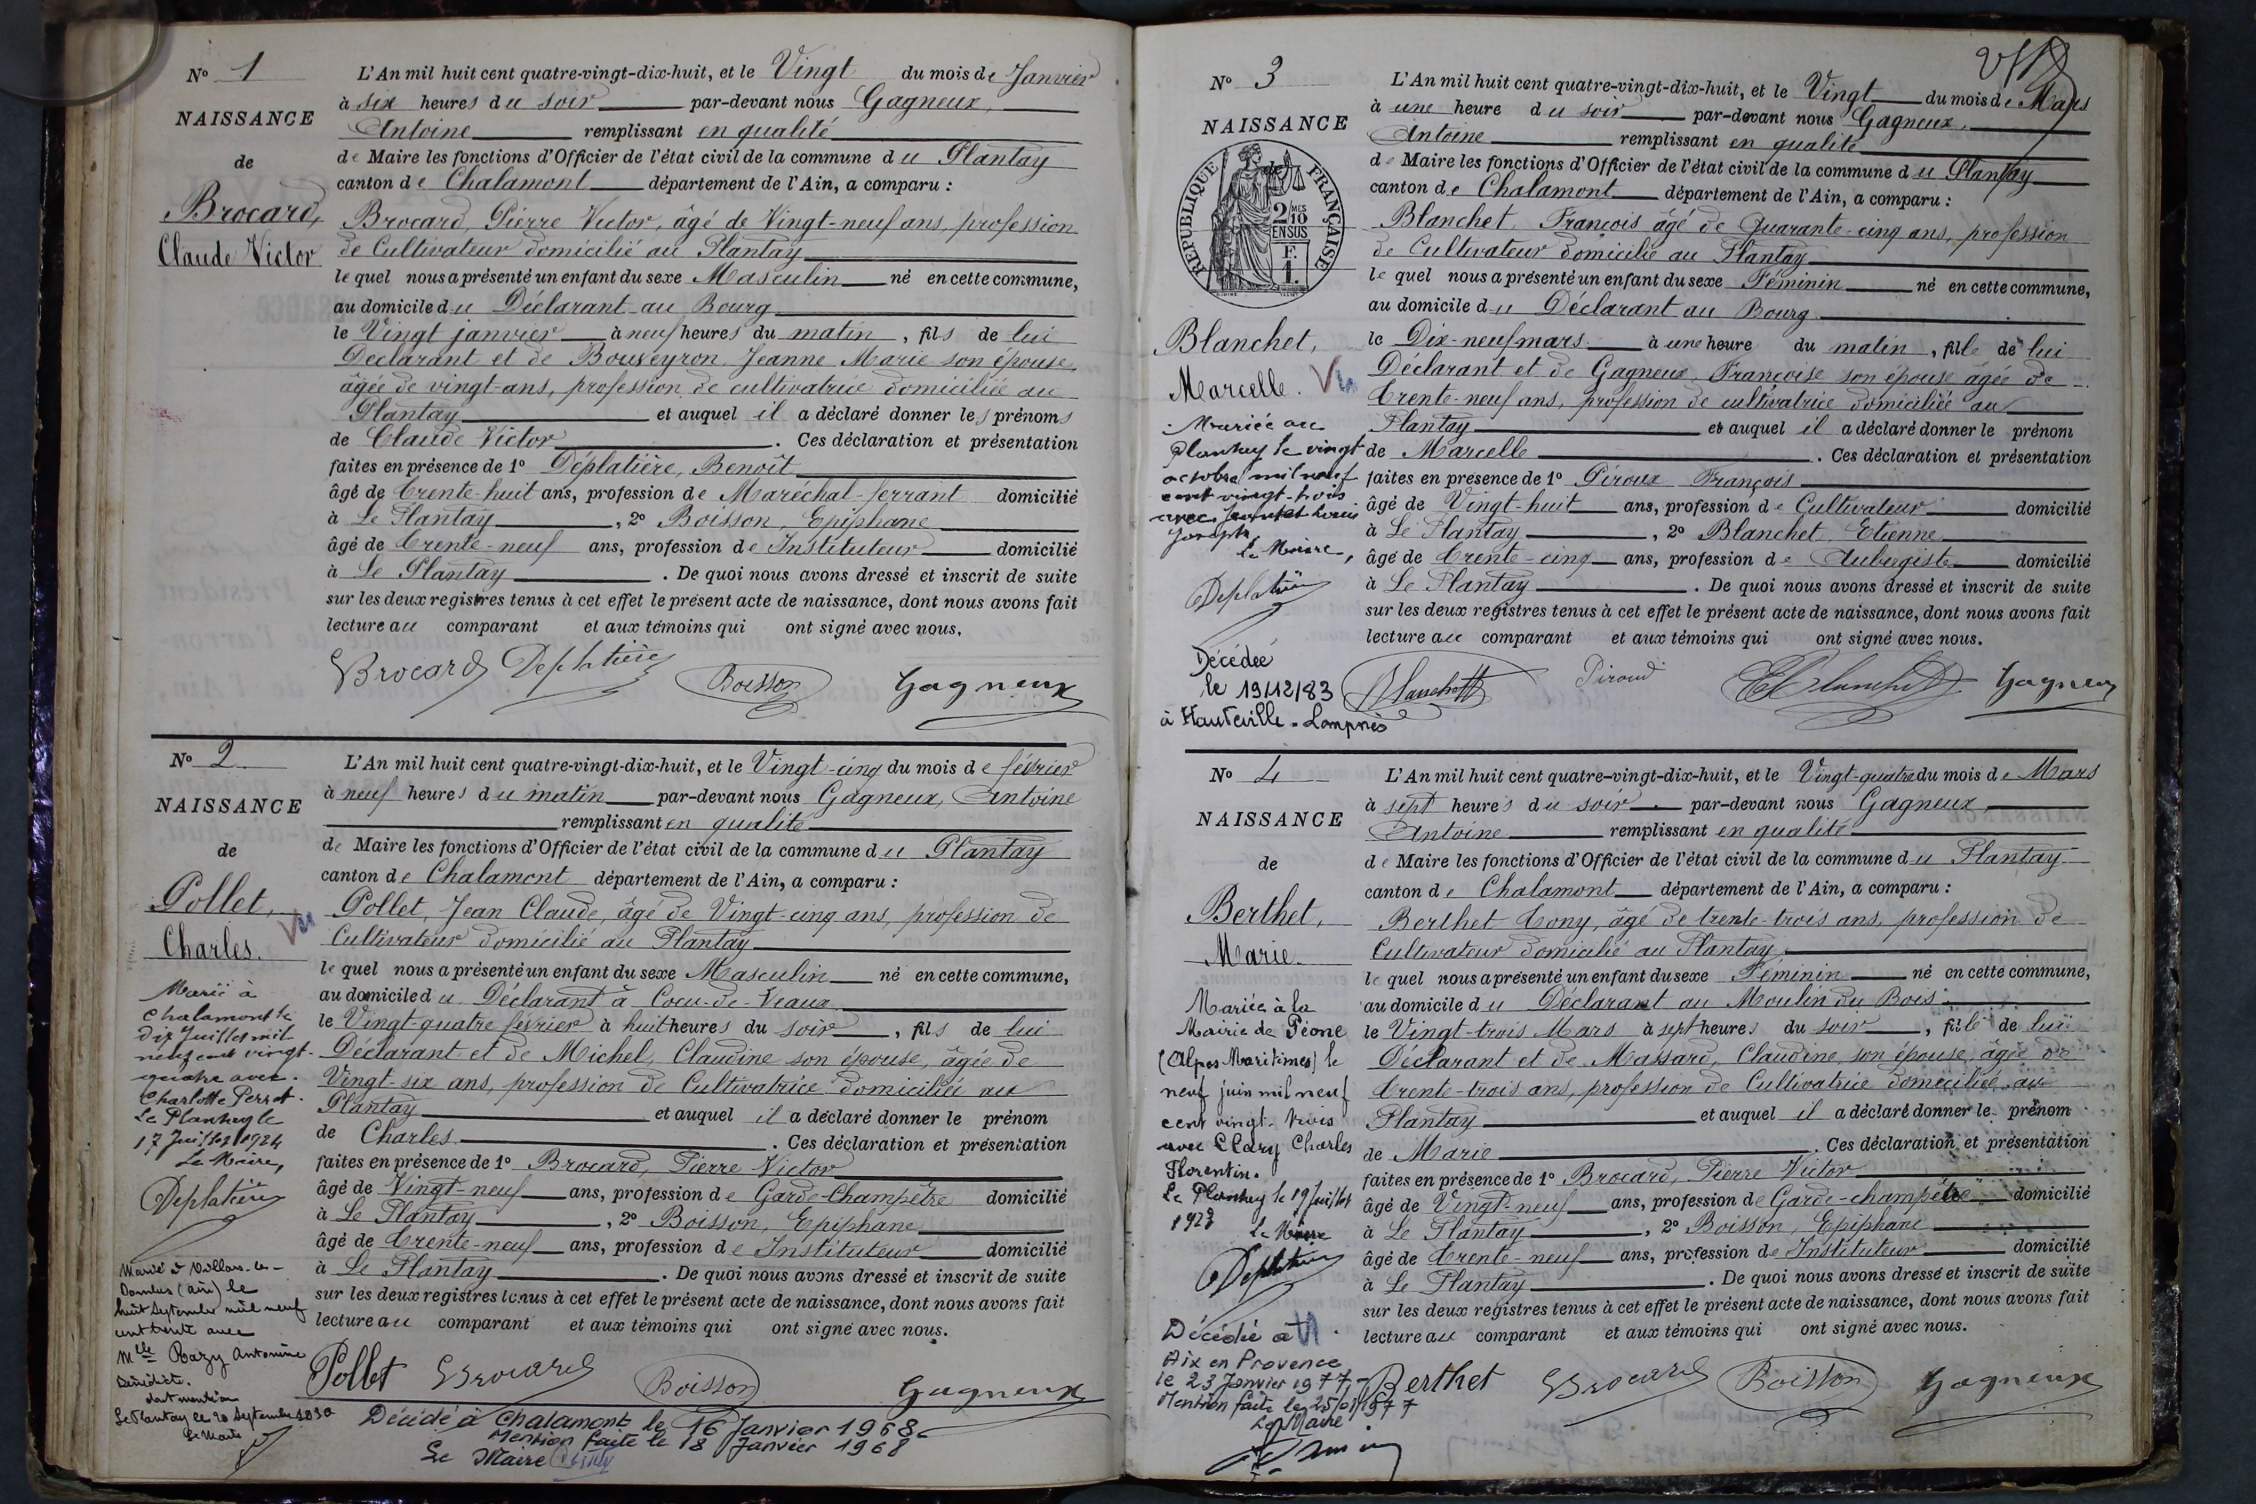 N° 1
NAISSANCE
de
Brocard,
Claude Victor
L'An mil huit cent quatre-vingt-dix-huit, et le Vingt du mois de Janvier
à six heures du soir par-devant nous Gagneux,
Antoine remplissant en qualité
de Maire les fonctions d'Officier de l'état civil de la commune du Plantay
canton de Chalamont département de l'Ain, a comparu :
Brocard, Pierre Victor, âgé de Vingt-neuf ans, profession
de Cultivateur domicilié au Plantay
lequel nous a présenté un enfant du sexe Masculin né en cette commune,
au domicile du Déclarant au Bourg
le Vingt janvier à neuf heures du matin, fils de lui
Déclarant et de Bouveyron Jeanne Marie son épouse,
âgée de vingt-ans, profession de cultivatrice domiciliée au
Plantay et auquel il a déclaré donner les prénoms
de Claude Victor. Ces déclaration et présentation
faites en présence de 1° Déplatière, Benoît
âgé de trente-huit ans, profession de Maréchal-ferrant domicilié
à Le Plantay, 2° Boisson, Epiphane
âgé de trente-neuf ans, profession de Instituteur domicilié
à Le Plantay. De quoi nous avons dressé et inscrit de suite
sur les deux registres tenus à cet effet le présent acte de naissance, dont nous avons fait
lecture au comparant et aux témoins qui ont signé avec nous.
Brocard Deplatière Boisson Gagneux
N° 2
NAISSANCE
de
Pollet,
Charles.
Vu
Marié à
Chalamont le
dix Juillet mil
neuf cent vingt-
quatre avec
Charlotte Perret.
Le Plantay le
17 Juillet 1924
Le Maire,
Deplatière
Marié à Villars-les-
Dombes (ain) le
huit Septembre mil neuf
cent trente avec
Mlle Razy Antonine
Bénédicte.
dont mention
Le Plantay le 20 Septembre 1930
Le Maire
L'An mil huit cent quatre-vingt-dix-huit, et le Vingt-cinq du mois de février
à neuf heures du matin par-devant nous Gagneux, Antoine
remplissant en qualité
de Maire les fonctions d'Officier de l'état civil de la commune du Plantay
canton de Chalamont département de l'Ain, a comparu :
Pollet, Jean Claude, âgé de Vingt-cinq ans, profession de
Cultivateur domicilié au Plantay
lequel nous a présenté un enfant du sexe Masculin né en cette commune,
au domicile du Déclarant à Cocu-de-Veaux
le Vingt-quatre février à huit heures du soir, fils de lui
Déclarant et de Michel, Claudine son épouse, âgée de
Vingt-six ans, profession de Cultivatrice domiciliée au
Plantay et auquel il a déclaré donner le prénom
de Charles. Ces déclaration et présentation
faites en présence de 1° Brocard, Pierre Victor
âgé de Vingt-neuf ans, profession de Garde-Champêtre domicilié
à Le Plantay, 2° Boisson, Epiphane
âgé de trente-neuf ans, profession de Instituteur domicilié
à Le Plantay. De quoi nous avons dressé et inscrit de suite
sur les deux registres tenus à cet effet le présent acte de naissance, dont nous avons fait
lecture au comparant et aux témoins qui ont signé avec nous.
Pollet Brocard Boisson Gagneux
Décédé à Chalamont le 16 Janvier 1968
Mention faite le 18 Janvier 1968
Le Maire
N° 3
NAISSANCE
de
RÉPUBLIQUE FRANÇAISE
2/10 MES
EN SUS
F.
1.
Blanchet,
Marcelle.
Vu
Mariée au
Plantay le vingt
octobre mil neuf
cent vingt-trois
avec Louis
Joseph
Le Maire,
Deplatière
Décédée
le 19/12/83
à Hauteville-Lompnès
L'An mil huit cent quatre-vingt-dix-huit, et le Vingt du mois de Mars
à une heure du soir par-devant nous Gagneux,
Antoine remplissant en qualité
de Maire les fonctions d'Officier de l'état civil de la commune du Plantay
canton de Chalamont département de l'Ain, a comparu :
Blanchet, François âgé de Quarante-cinq ans, profession
de Cultivateur domicilié au Plantay
lequel nous a présenté un enfant du sexe Féminin né en cette commune,
au domicile du Déclarant au Bourg
le Dix-neuf mars à une heure du matin, fille de lui
Déclarant et de Gagneux Françoise son épouse âgée de
trente-neuf ans, profession de cultivatrice domiciliée au
Plantay et auquel il a déclaré donner le prénom
de Marcelle. Ces déclaration et présentation
faites en présence de 1° Piroux François
âgé de Vingt-huit ans, profession de Cultivateur domicilié
à Le Plantay, 2° Blanchet, Etienne
âgé de trente-cinq ans, profession de Aubergiste domicilié
à Le Plantay. De quoi nous avons dressé et inscrit de suite
sur les deux registres tenus à cet effet le présent acte de naissance, dont nous avons fait
lecture au comparant et aux témoins qui ont signé avec nous.
Blanchet Piroud Blanchet Gagneux
N° 4
NAISSANCE
de
Berthet,
Marie
Mariée à la
Mairie de Péone
(Alpes Maritimes) le
neuf juin mil neuf
cent vingt-trois
avec Clary Charles
Florentin.
Le Plantay le 19 Juillet
1923
Le Maire
Deplatière
Décédée à
Aix en Provence
le 23 Janvier 1977
Mention faite le 25/01/1977
Le Maire
L'An mil huit cent quatre-vingt-dix-huit, et le Vingt-quatre du mois de Mars
à sept heures du soir par-devant nous Gagneux
Antoine remplissant en qualité
de Maire les fonctions d'Officier de l'état civil de la commune du Plantay
canton de Chalamont département de l'Ain, a comparu :
Berthet Tony, âgé de trente-trois ans, profession de
Cultivateur domicilié au Plantay
lequel nous a présenté un enfant du sexe Féminin né en cette commune,
au domicile du Déclarant au Moulin du Bois
le Vingt-trois Mars à sept heures du soir, fille de lui
Déclarant et de Massard, Claudine son épouse, âgée de
trente-trois ans, profession de Cultivatrice domiciliée au
Plantay et auquel il a déclaré donner le prénom
de Marie. Ces déclaration et présentation
faites en présence de 1° Brocard, Pierre Victor
âgé de Vingt-neuf ans, profession de Garde-champêtre domicilié
à Le Plantay, 2° Boisson, Epiphane
âgé de trente-neuf ans, profession de Instituteur domicilié
à Le Plantay. De quoi nous avons dressé et inscrit de suite
sur les deux registres tenus à cet effet le présent acte de naissance, dont nous avons fait
lecture au comparant et aux témoins qui ont signé avec nous.
Berthet Brocard Boisson Gagneux